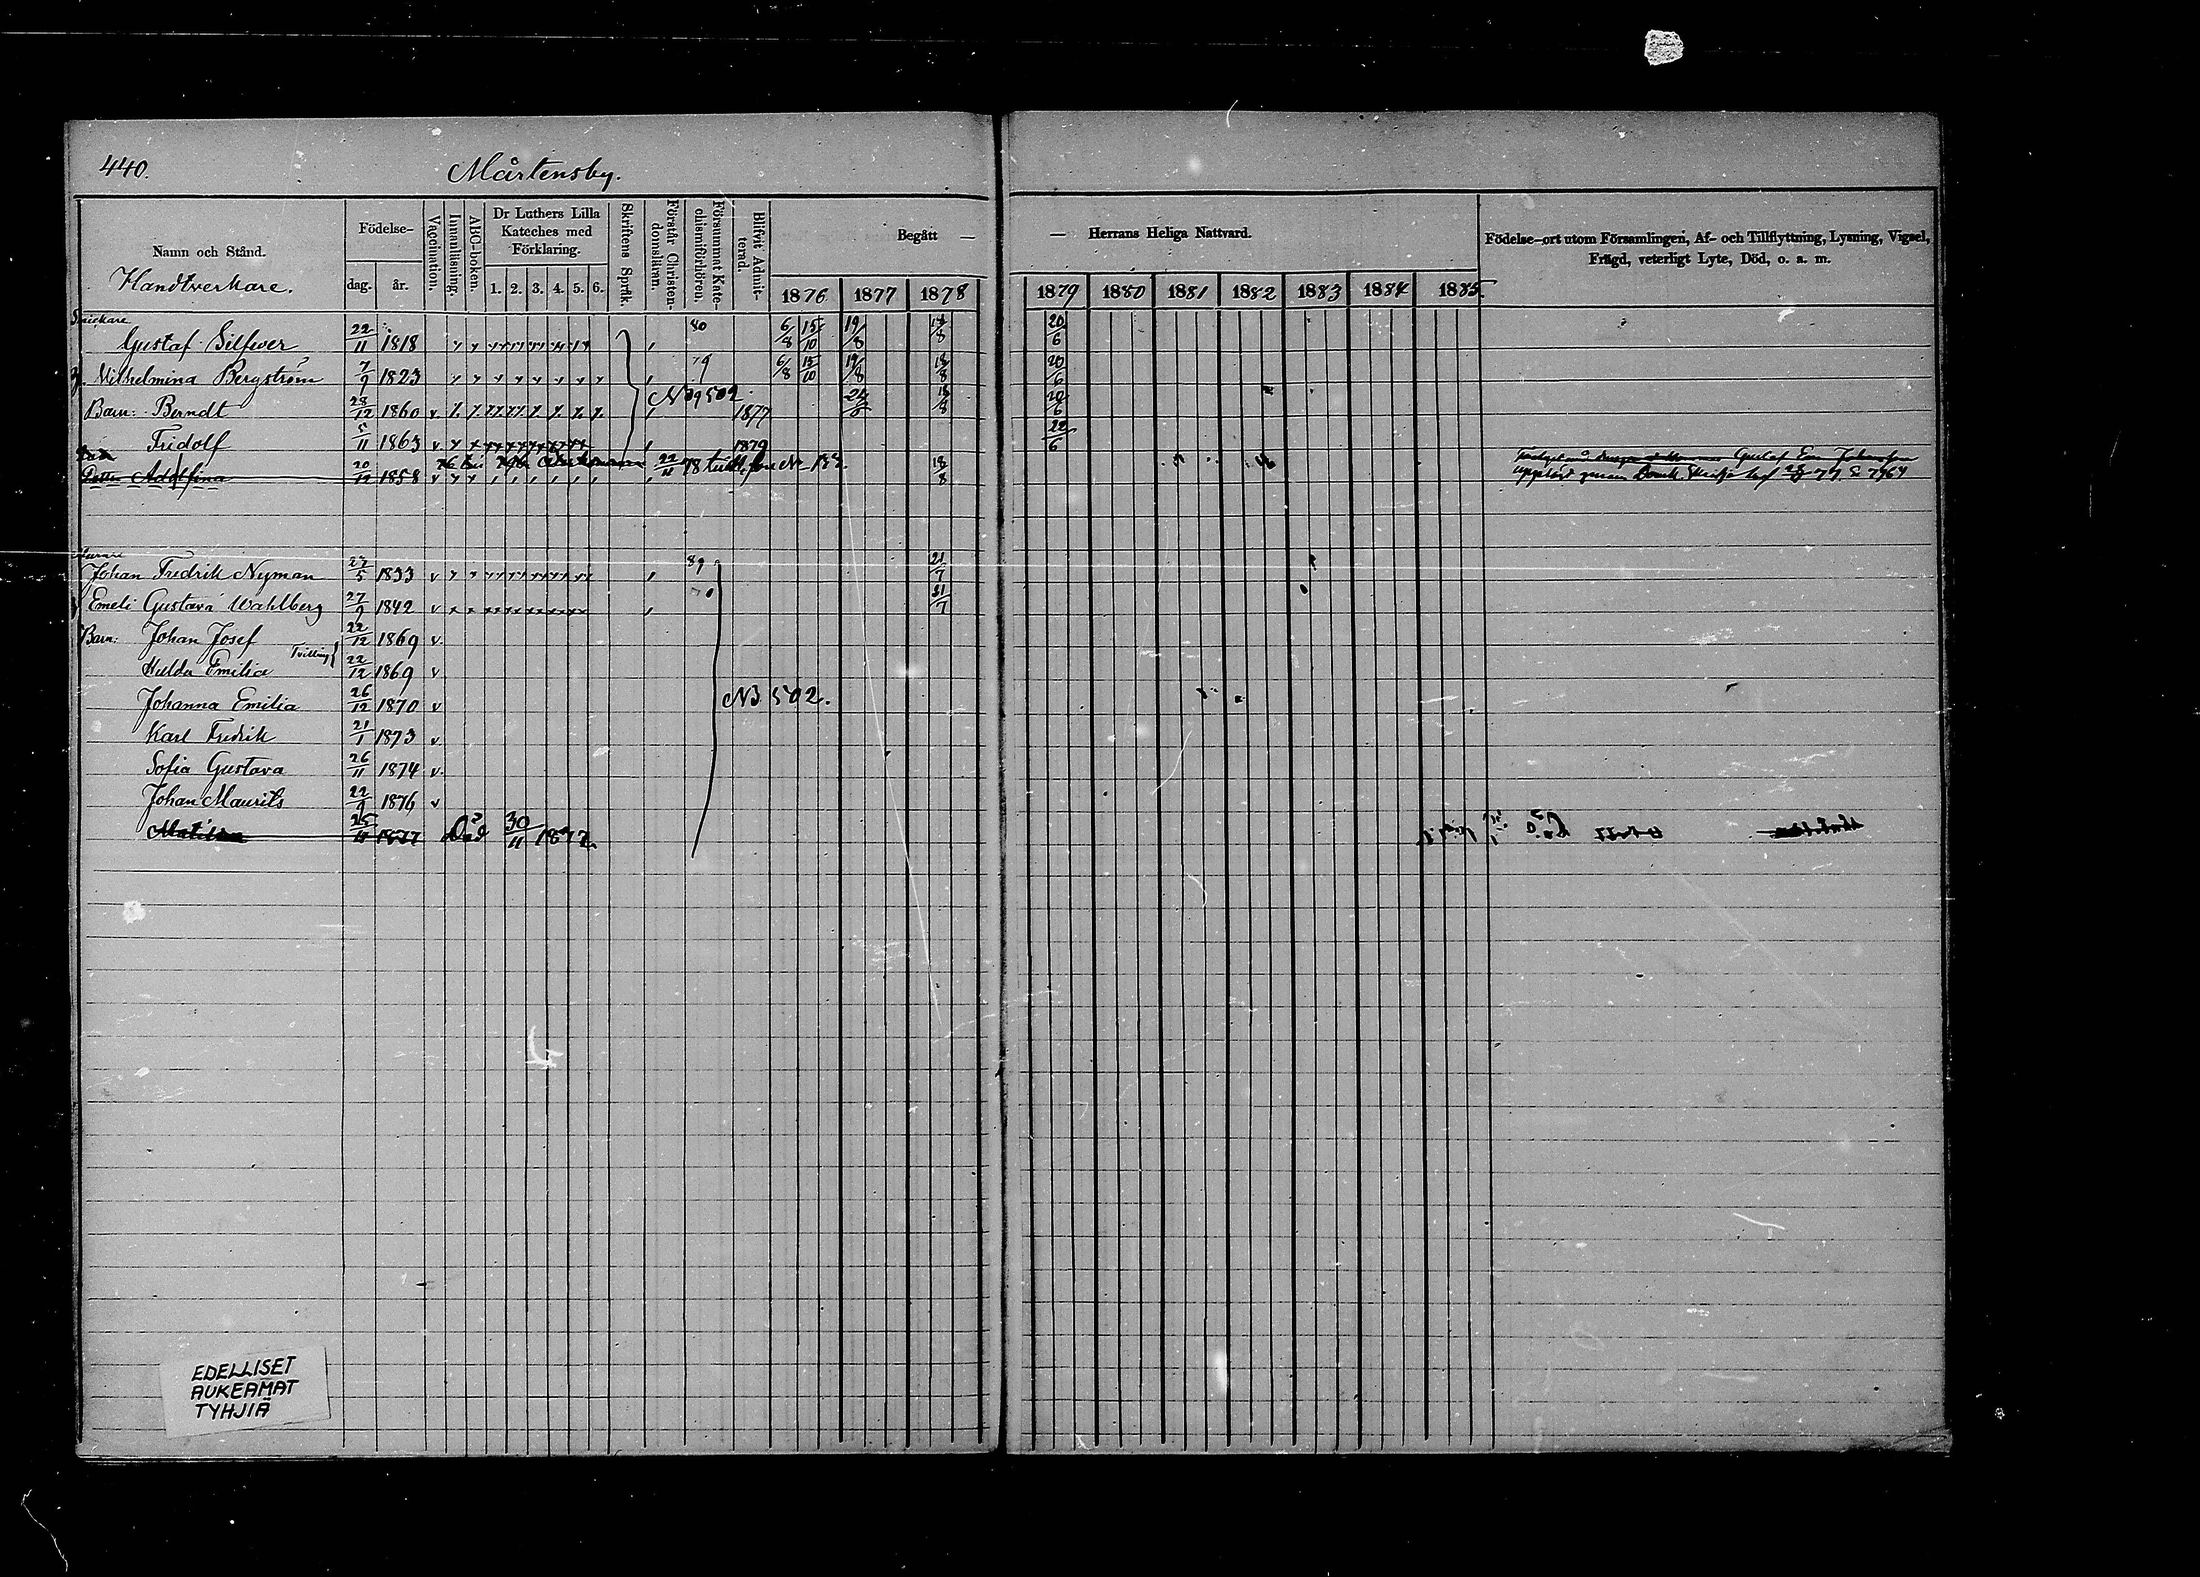 440.
Mårtensby.
Namn och Stånd.
Handtverkare.
Födelse-
dag.
år.
Vaccination.
Innanläsning.
ABC-boken.
Dr Luthers Lilla
Kateches med
Förklaring.
1. 2. 3. 4. 5. 6.
Skriftens Språk.
Förstår Christen-
domsläran.
Försummat Kate-
chismiförhören.
Blifvit Admit-
terad.
Begått —
1876 1877 1878
— Herrans Heliga Nattvard.
1879 1880 1881 1882 1883 1884 1885
Födelse-ort utom Församlingen, Af- och Tillflyttning, Lysning, Vigsel,
Frägd, veterligt Lyte, Död, o. a. m.
Snickare
Gustaf Silfwer 22/11 1818 80 6/8 15/10 19/8 18/8 20/6
Vilhelmina Bergström 7/9 1823 79 6/8 15/10 19/8 18/8 20/6
Barn: Berndt 28/12 1860 v 1877 18/8 20/6
N39 502
Fridolf 5/11 1863 v 1879 22/6
Dotter Adolfina 20/12 1858 v 18/8
Gustaf
Johan Fredrik Nyman 27/5 1833 v 89 21/7
Emeli Gustava Wahlberg 27/9 1842 v 21/7
Barn: Johan Josef 22/12 1869 v
Tvilling
Hulda Emilia 22/12 1869 v
Johanna Emilia 26/12 1870 v N3 502.
Karl Fredrik 21/1 1873 v
Sofia Gustava 26/11 1874 v.
Johan Maurits 22/9 1876 v
1877 Död 30/11 1877.
EDELLISET
AUKEAMAT
TYHJIÄ